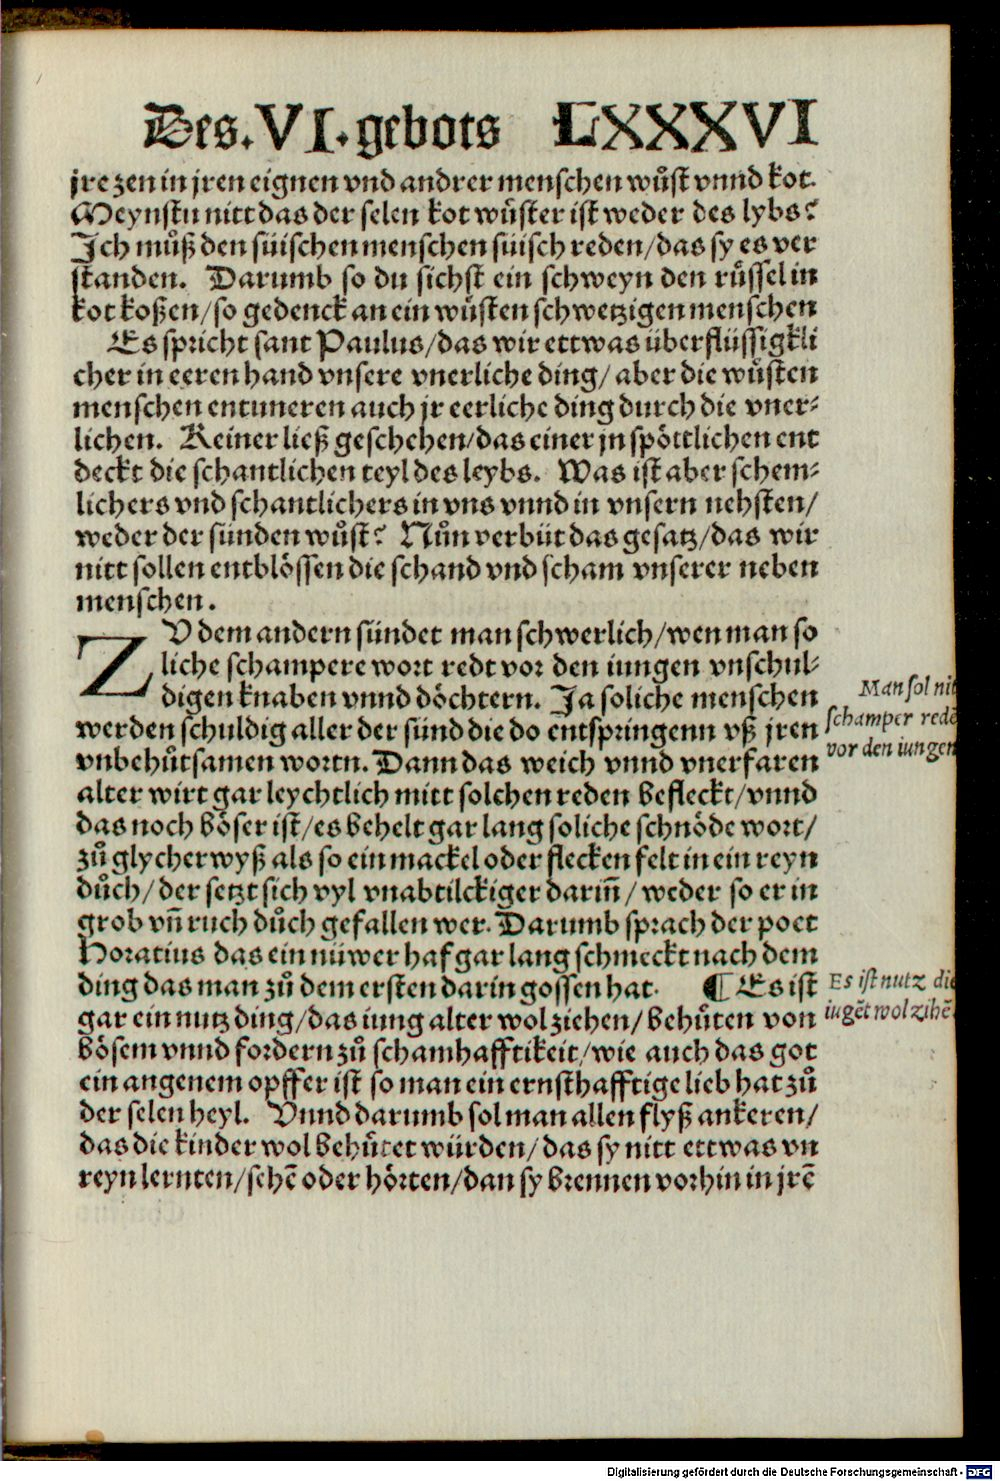 Des.VI.gebots LXXXVI
jre zen in jren eignen vnd andrer menschen wuͤst vnnd kot.
Meynstu nitt das der selen kot wuͤster ist weder des lybs?
Ich muͦß den süischen menschen süisch reden/das sy es ver
standen. Darumb so du sichst ein schweyn den ruͤssel in
kot koßen/so gedenck an ein wuͤsten schwetzigen menschen
Es spricht sant Paulus/das wir ettwas überflüssigkli
cher in eeren hand vnsere vnerliche ding/ aber die wuͤsten
menschen entuneren auch jr eerliche ding durch die vner⸗
lichen. Keiner ließ geschehen/das einer jn spöttlichen ent
deckt die schantlichen teyl des leybs. Was ist aber schem⸗
lichers vnd schantlichers in vns vnnd in vnsern nehsten/
weder der sünden wuͦst? Nuͦn verbüt das gesatz/das wir
nitt sollen entblössen die schand vnd scham vnserer neben
menschen.
ZV dem andern sündet man schwerlich/wen man so
liche schampere wort redt vor den iungen vnschul⸗
digen knaben vnnd döchtern. Ja soliche menschen
werden schuldig aller der sünd die do entspringenn vß jren
vnbehuͦtsamen wortn. Dann das weich vnnd vnerfaren
alter wirt gar leychtlich mitt solchen reden befleckt/vnnd
das noch böser ist/es behelt gar lang soliche schnöde wort/
zuͦ glycher wyß als so ein mackel oder flecken felt in ein reyn
duͦch/der setzt sich vyl vnabtilckiger darin̄/ weder so er in
grob vn̄ ruch duͦch gefallen wer. Darumb sprach der poet
Horatius das ein nüwer haf gar lang schmeckt nach dem
ding das man zuͦ dem ersten darin gossen hat. ¶ Es ist
gar ein nutz ding/das iung alter wol ziehen/ behuͤten von
bösem vnnd fordern zuͦ schamhafftikeit/wie auch das got
ein angenem opffer ist so man ein ernsthafftige lieb hat zuͦ
der selen heyl. Vnnd darumb sol man allen flyß ankeren/
das die kinder wol behuͤtet würden/das sy nitt ettwas vn
reyn lernten/sehē oder hörten/dan sy brennen vorhin in jrē
Man sol nit
schamper redē
vor den iungen
Es ist nutz die
iugēt wol zihē.
Digitalisierung gefördert durch die Deutsche Forschungsgemeinschaft - DFG